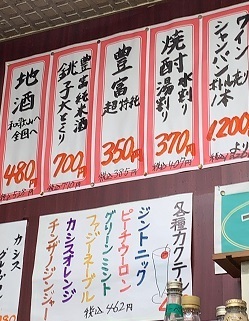 ワイン
シャンパン
ボトル
1本
1200
より
焼酎
水割り
湯割り
370円
税込407円
豊富
超特純
350円
税込385円
豊富純米酒
銚子大とくり
700円
税込770円
地酒
和歌山〜
全国へ
480円
税込528円
各種カクテル
ジントニック
ピーチウーロン
グリーンミント
ファジーネーブル
カシスオレンジ
チャイナジンジャー
税込462円
カシス